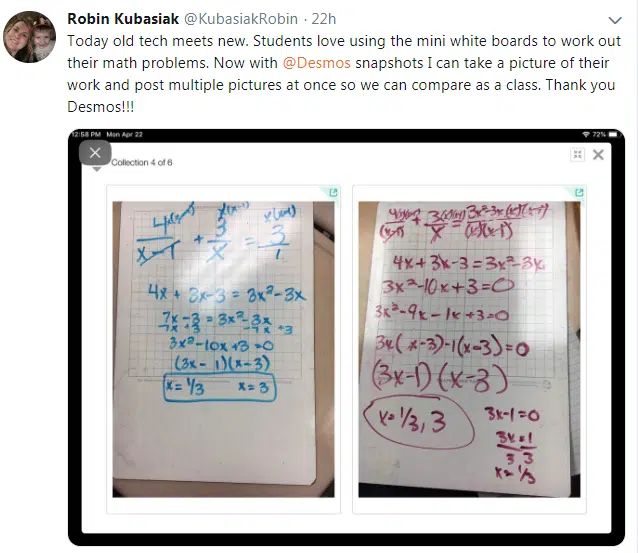 Robin Kubasiak @KubasiakRobin · 22h
Today old tech meets new. Students love using the mini white boards to work out
their math problems. Now with @Desmos snapshots I can take a picture of their
work and post multiple pictures at once so we can compare as a class. Thank you
Desmos!!!
12:58 PM Mon Apr 22 72%
Collection 4 of 6
4x + 3x-3 = 3x²-3x
7x-3 = 3x²-3x
-7x +3 -7x +3
3x²-10x+3=0
(3x-1)(x-3)
x=1/3 x=3
4x+3x-3=3x²-3x
3x²-10x+3=0
3x²-9x-1x+3=0
3x(x-3)-1(x-3)=0
(3x-1)(x-3)
x=1/3,3
3x-1=0
3x=1
3 3
x=1/3